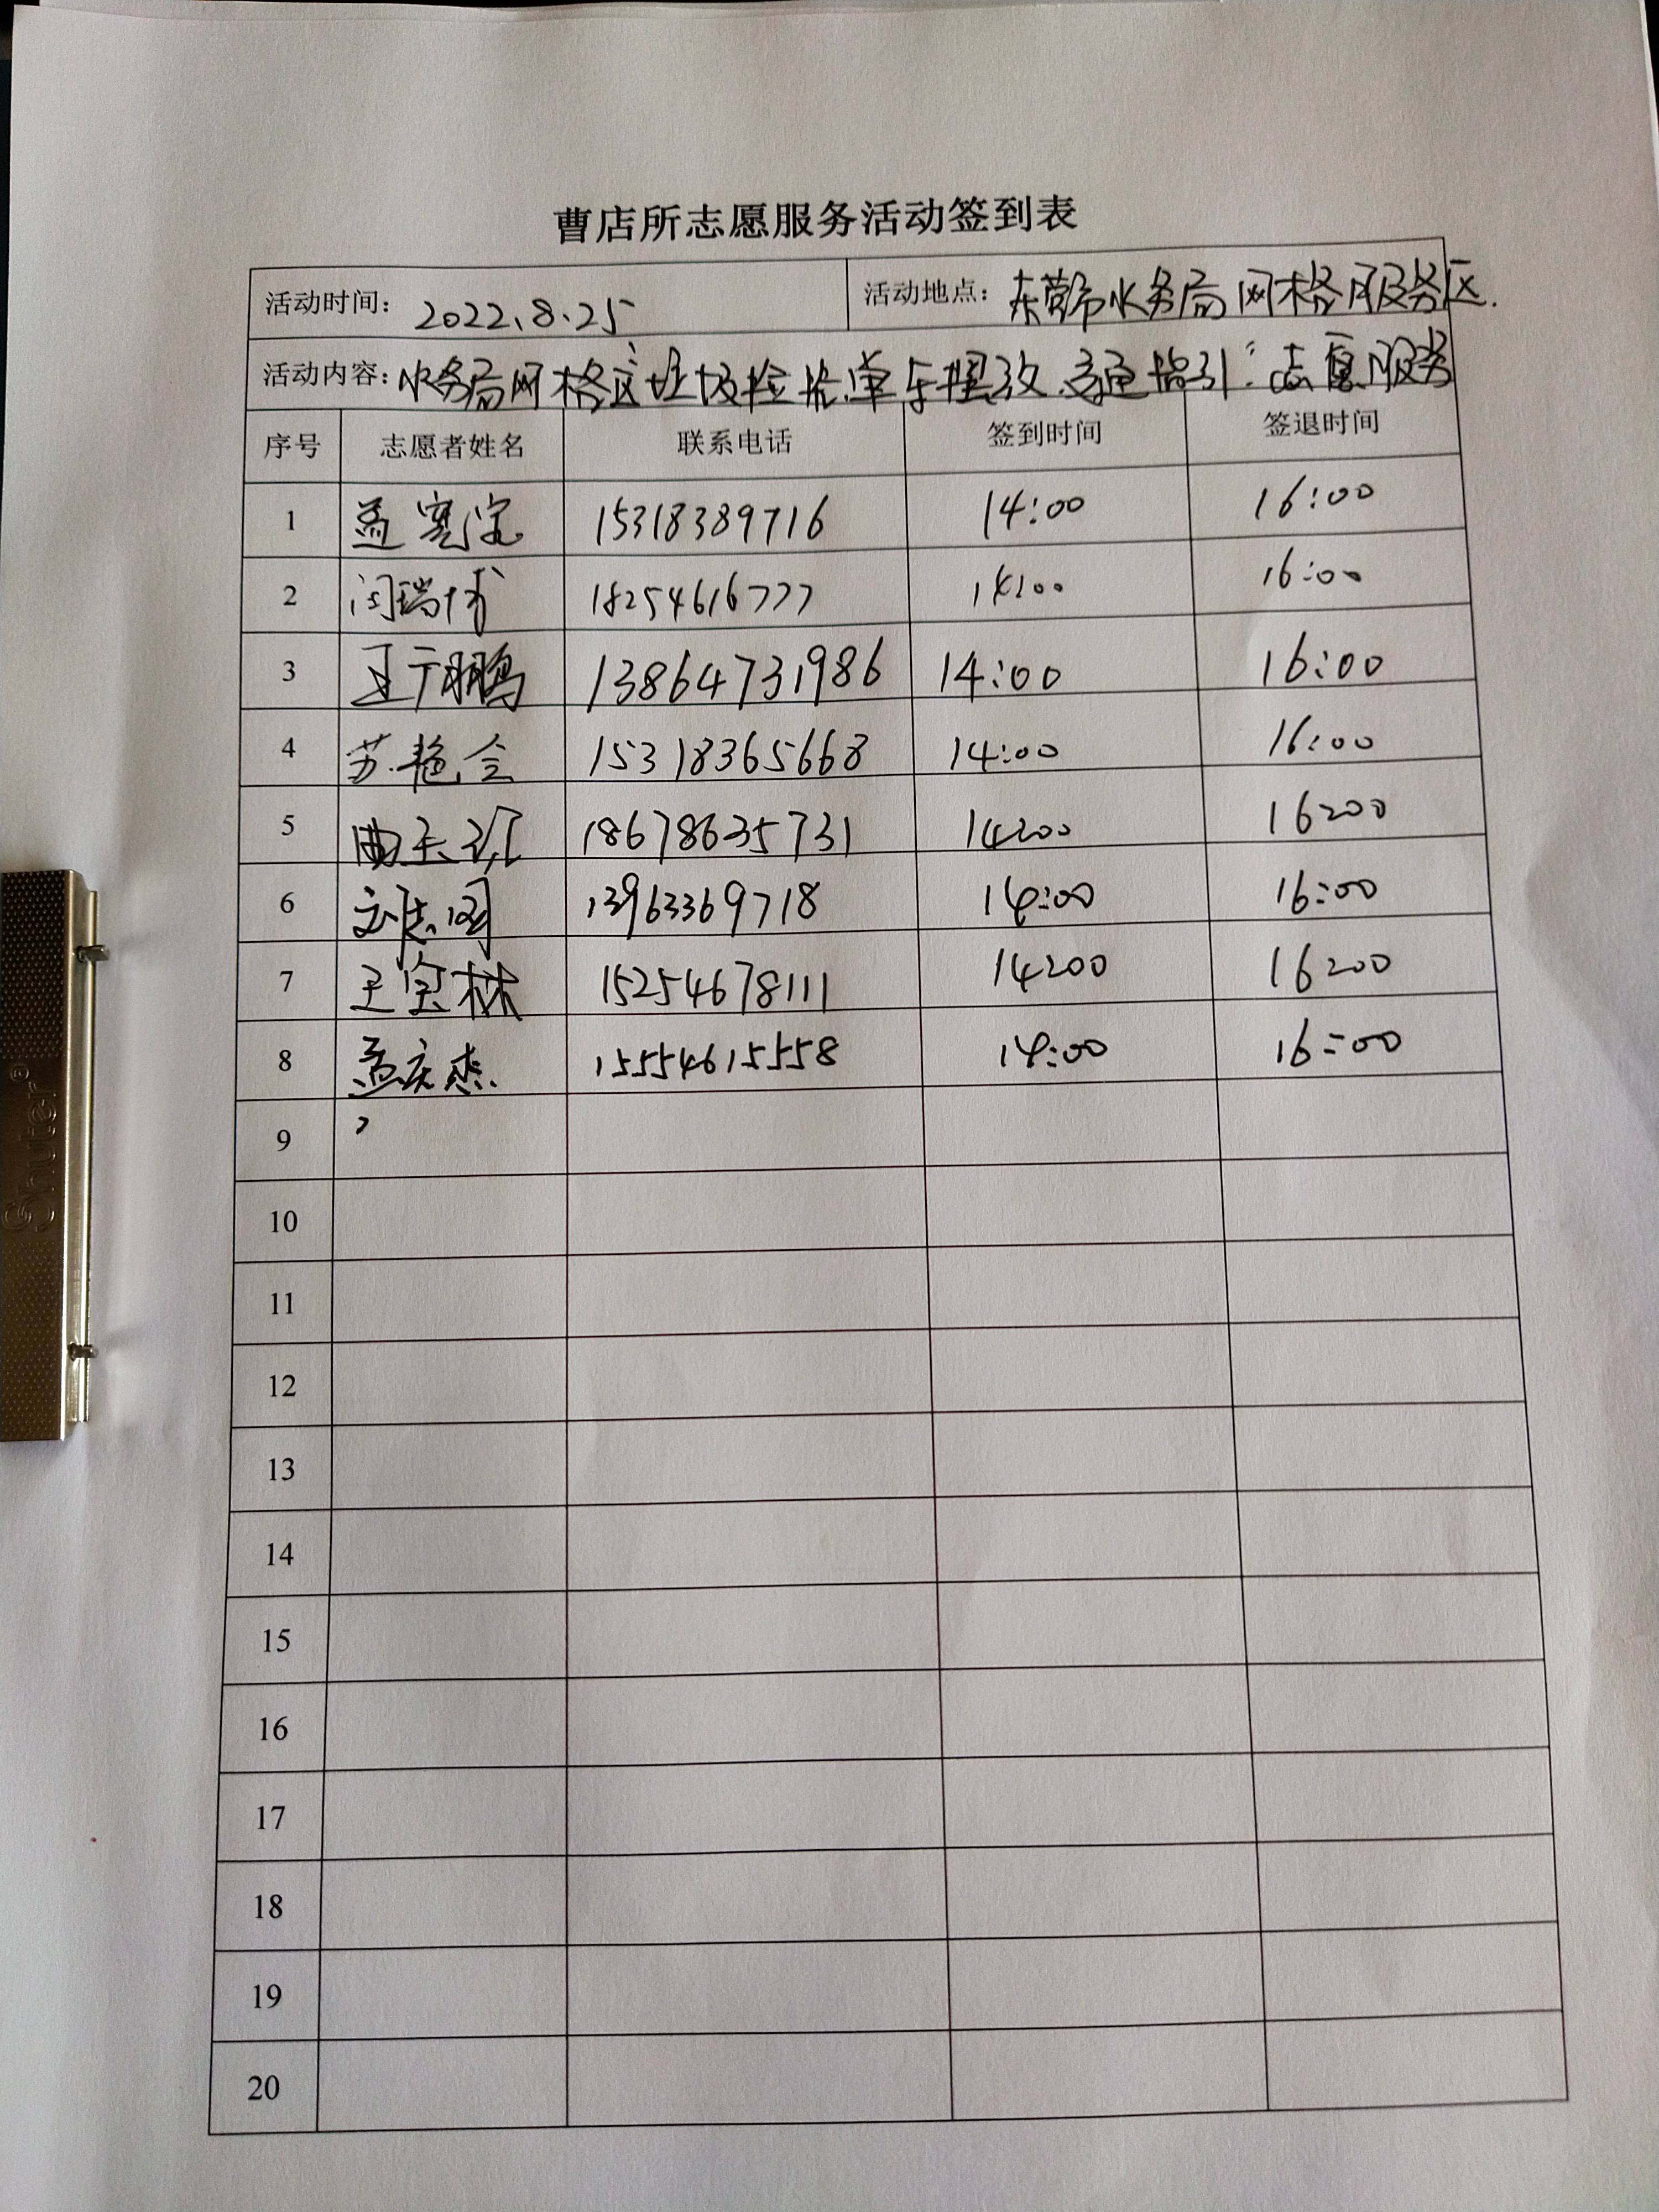 曹店所志愿服务活动签到表
活动时间: 2022.8.25 活动地点: 东营市水务局网格服务区.
活动内容: 水务局网格区垃圾捡拾.单车摆放.交通指引"志愿服务
序号 志愿者姓名 联系电话 签到时间 签退时间
1 孟宪宝 15318389716 14:00 16:00
2 闫瑞博 18254616777 14:00 16:00
3 王广鹏 13864731986 14:00 16:00
4 苏艳会 15318365668 14:00 16:00
5 曲玉 18678635731 14:00 16:00
6 刘志刚 13963369718 14:00 16:00
7 王宝林 15254678111 14:00 16:00
8 孟庆杰. 15554615558 14:00 16:00
9
10
11
12
13
14
15
16
17
18
19
20
Shuter®